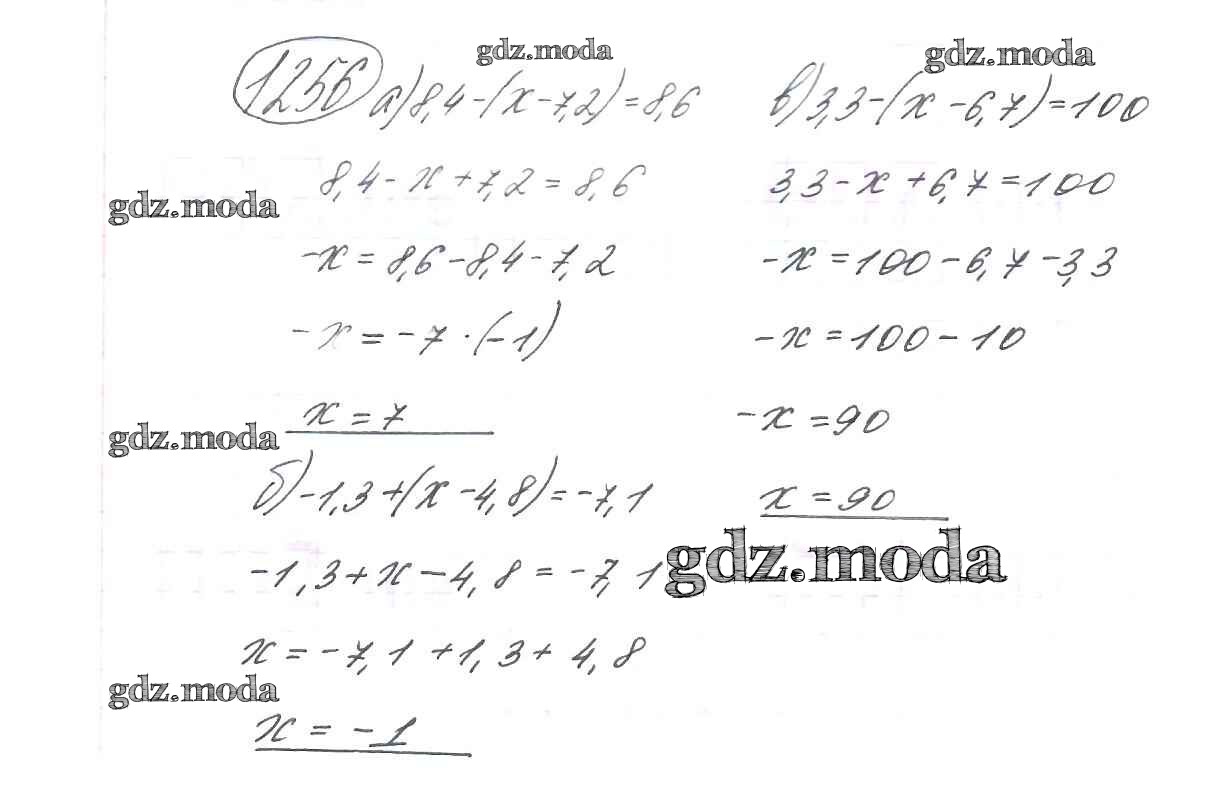 gdz.moda
gdz.moda
1256 а) 8,4-(x-7,2)=8,6
8,4-x+7,2=8,6
gdz.moda
-x=8,6-8,4-7,2
-x=-7·(-1)
x=7
gdz.moda
б) -1,3+(x-4,8)=-7,1
-1,3+x-4,8=-7,1
x=-7,1+1,3+4,8
gdz.moda
x=-1
в) 3,3-(x-6,7)=100
3,3-x+6,7=100
-x=100-6,7-3,3
-x=100-10
-x=90
x=90
gdz.moda